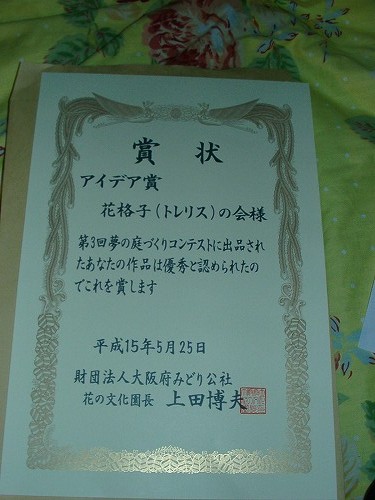 賞 状
アイデア賞
花格子(トレリス)の会様
第3回夢の庭づくりコンテストに出品され
たあなたの作品は優秀と認められたの
でこれを賞します
平成15年5月25日
財団法人大阪府みどり公社
花の文化園長 上田博夫